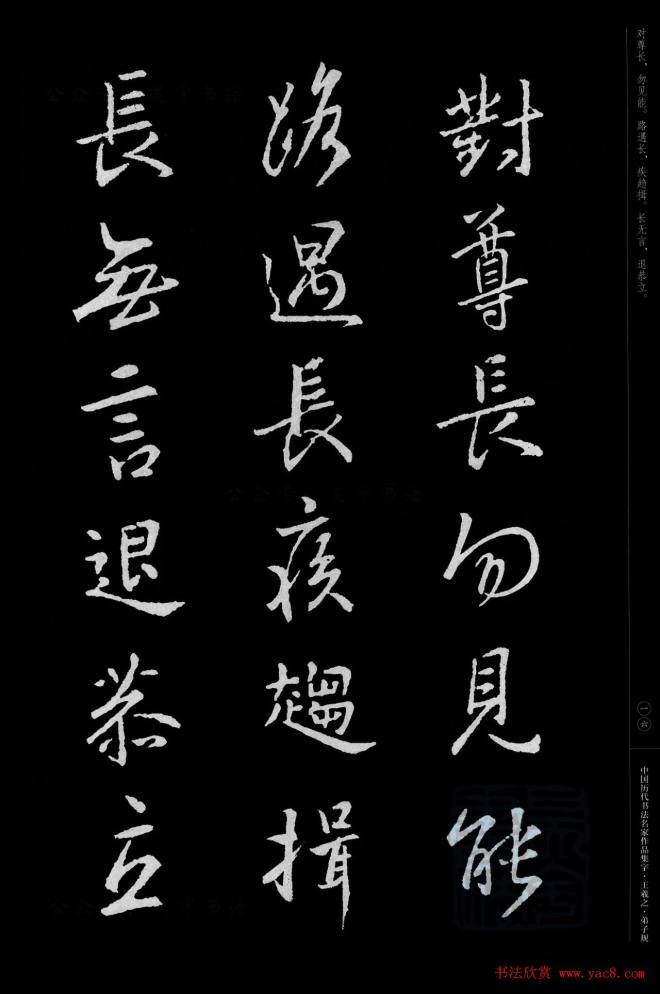 对尊长，勿见能。路遇长，疾趋揖。长无言，退恭立。
對尊長勿見能
路遇長疾趨揖
長無言退恭立
一六
中国历代书法名家作品集字·王羲之·弟子规
书法欣赏 www.yac8.com